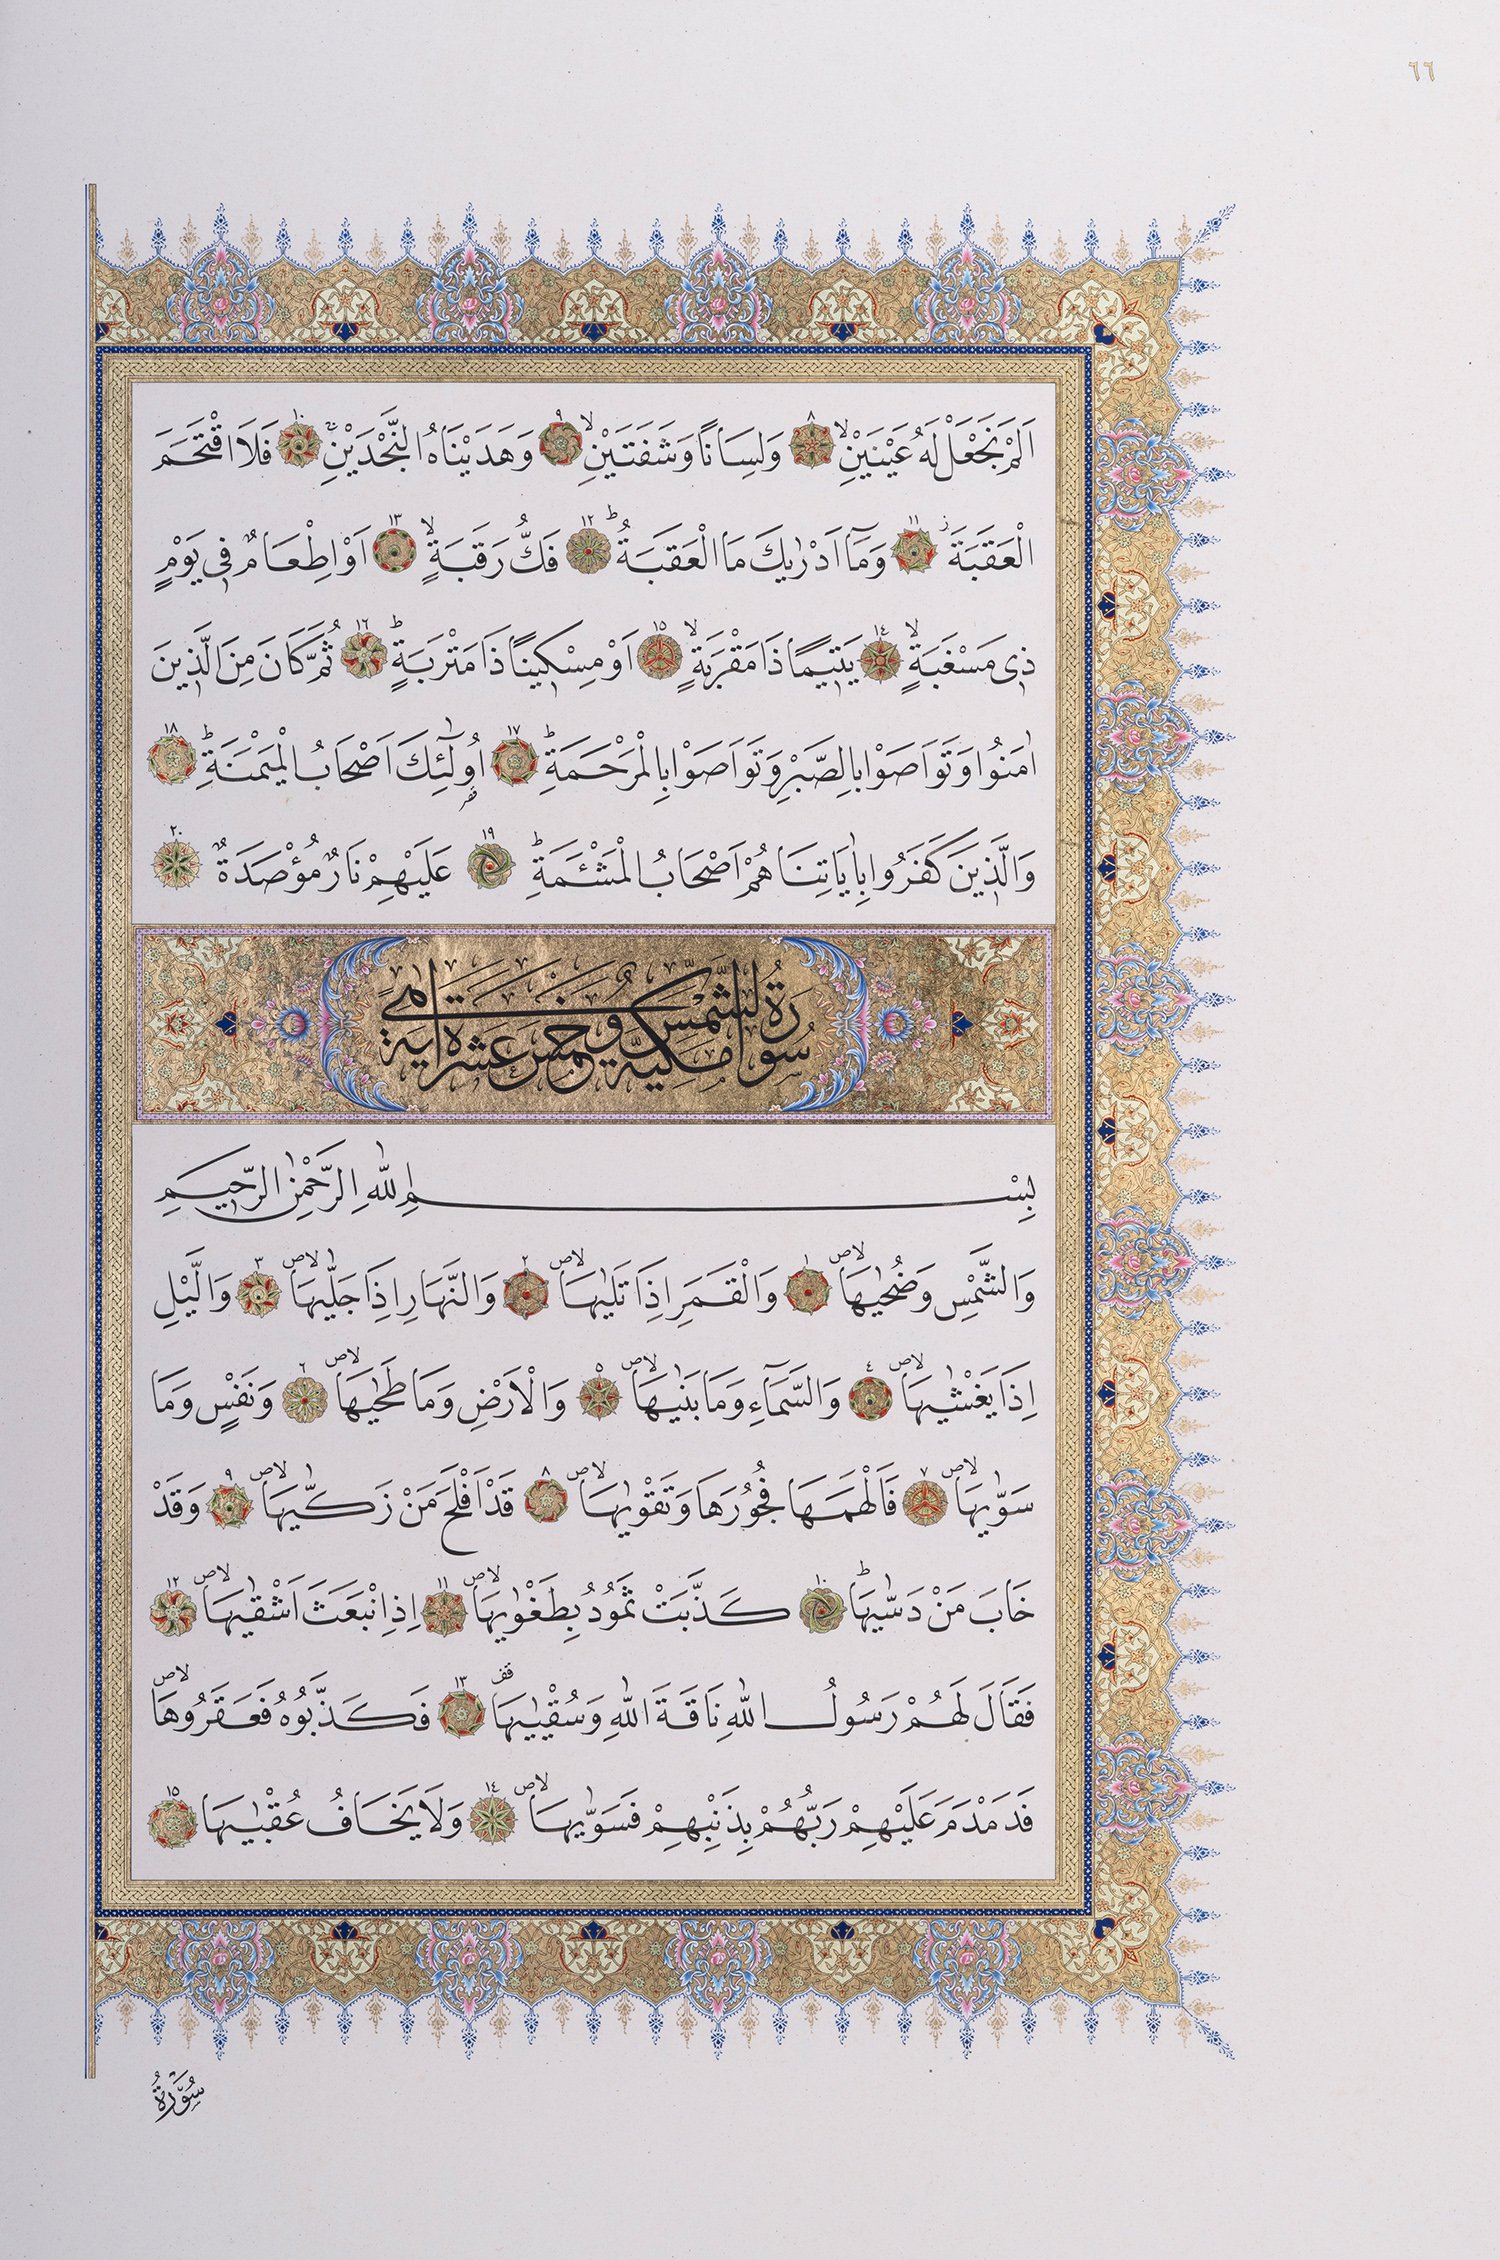 ٦٦
اَلَمْ نَجْعَلْ لَهُ عَيْنَيْنِۙ ٨ وَلِسَانًا وَشَفَتَيْنِۙ ٩ وَهَدَيْنَاهُ النَّجْدَيْنِۚ ١٠ فَلَا اقْتَحَمَ
الْعَقَبَةَۘ ١١ وَمَٓا اَدْرٰيكَ مَا الْعَقَبَةُۜ ١٢ فَكُّ رَقَبَةٍۙ ١٣ اَوْ اِطْعَامٌ فٖي يَوْمٍ
ذٖي مَسْغَبَةٍۙ ١٤ يَتٖيمًا ذَا مَقْرَبَةٍۙ ١٥ اَوْ مِسْكٖينًا ذَا مَتْرَبَةٍۜ ١٦ ثُمَّ كَانَ مِنَ الَّذٖينَ
اٰمَنُوا وَتَوَاصَوْا بِالصَّبْرِ وَتَوَاصَوْا بِالْمَرْحَمَةِۜ ١٧ اُو۬لٰٓئِكَ اَصْحَابُ الْمَيْمَنَةِۜ ١٨
وَالَّذٖينَ كَفَرُوا بِاٰيَاتِنَا هُمْ اَصْحَابُ الْمَشْـَٔمَةِۜ ١٩ عَلَيْهِمْ نَارٌ مُؤْصَدَةٌ ٢٠
سُورَةُ الشَّمْسِ مَكِّيَّةٌ وَهِيَ خَمْسَ عَشْرَةَ اٰيَةً
بِسْمِ اللّٰهِ الرَّحْمٰنِ الرَّحٖيمِ
وَالشَّمْسِ وَضُحٰيهَاۙۖ ١ وَالْقَمَرِ اِذَا تَلٰيهَاۙۖ ٢ وَالنَّهَارِ اِذَا جَلّٰيهَاۙۖ ٣ وَالَّيْلِ
اِذَا يَغْشٰيهَاۙۖ ٤ وَالسَّمَٓاءِ وَمَا بَنٰيهَاۙۖ ٥ وَالْاَرْضِ وَمَا طَحٰيهَاۙۖ ٦ وَنَفْسٍ وَمَا
سَوّٰيهَاۙۖ ٧ فَاَلْهَمَهَا فُجُورَهَا وَتَقْوٰيهَاۙۖ ٨ قَدْ اَفْلَحَ مَنْ زَكّٰيهَاۙۖ ٩ وَقَدْ
خَابَ مَنْ دَسّٰيهَاۜ ١٠ كَذَّبَتْ ثَمُودُ بِطَغْوٰيهَاۙۖ ١١ اِذِ انْبَعَثَ اَشْقٰيهَاۙۖ ١٢
فَقَالَ لَهُمْ رَسُولُ اللّٰهِ نَاقَةَ اللّٰهِ وَسُقْيٰيهَا قف ١٣ فَكَذَّبُوهُ فَعَقَرُوهَاۙۖ
فَدَمْدَمَ عَلَيْهِمْ رَبُّهُمْ بِذَنْبِهِمْ فَسَوّٰيهَاۙۖ ١٤ وَلَا يَخَافُ عُقْبٰيهَا ١٥
سُورَةُ